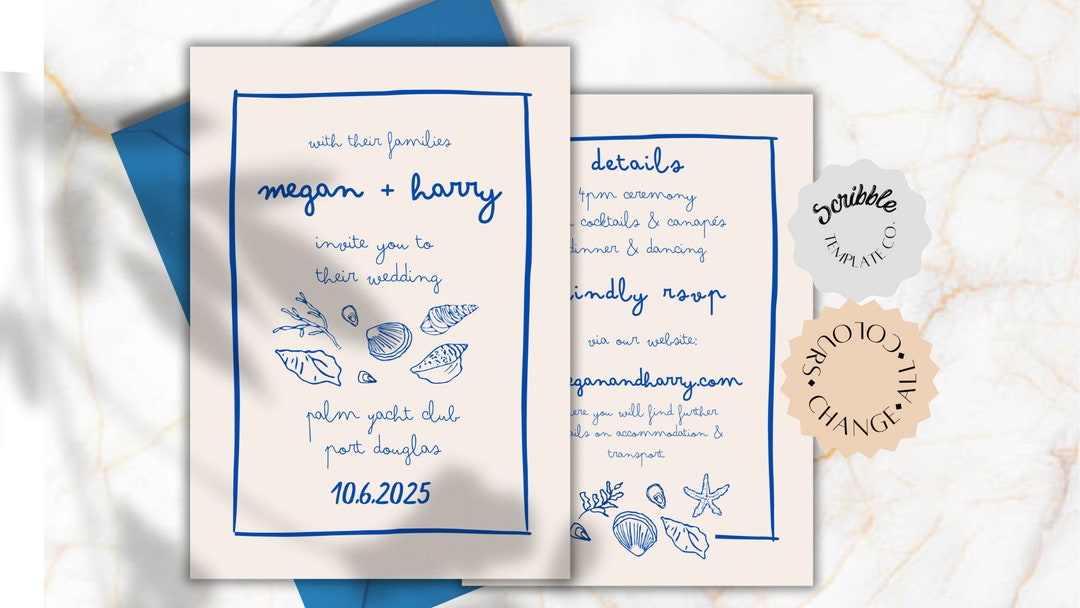 with their families
megan + harry
invite you to
their wedding
palm yacht club
port douglas
10.6.2025
details
4pm ceremony
cocktails & canapés
& dancing
rsvp
via our website:
you will find further
on accommodation &
transport
Scribble
TEMPLATE CO.
CHANGE • ALL • COLOURS •